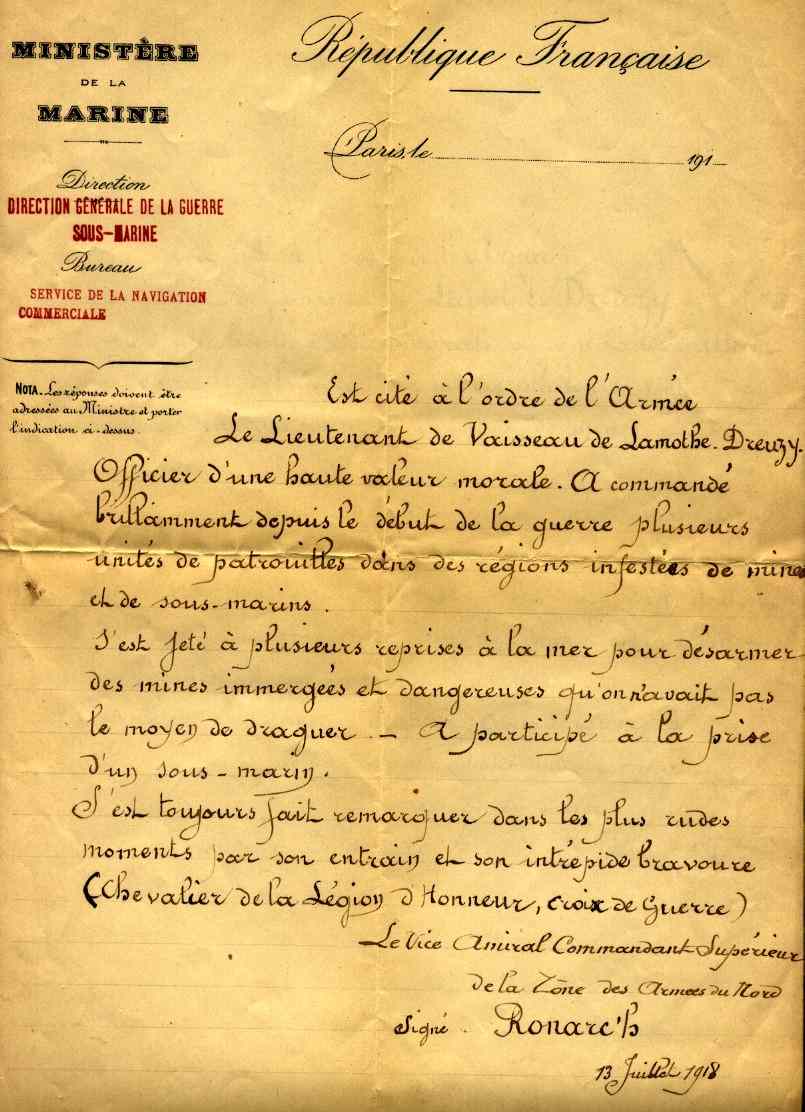 MINISTÈRE
DE LA
MARINE
République Française
Paris, le 191
Direction
DIRECTION GÉNÉRALE DE LA GUERRE
SOUS-MARINE
Bureau
SERVICE DE LA NAVIGATION
COMMERCIALE
NOTA. Les réponses doivent être
adressées au Ministre et porter
l'indication ci-dessus.
Est cité à l'ordre de l'Armée
Le Lieutenant de Vaisseau de Lamothe-Dreuzy.
Officier d'une haute valeur morale. A commandé
brillamment depuis le début de la guerre plusieurs
unités de patrouilles dans des régions infestées de mines
et de sous-marins.
S'est jeté à plusieurs reprises à la mer pour désarmer
des mines immergées et dangereuses qu'on n'avait pas
le moyen de draguer. — A participé à la prise
d'un sous-marin.
S'est toujours fait remarquer dans les plus rudes
moments par son entrain et son intrépide bravoure
(Chevalier de la Légion d'Honneur, croix de Guerre)
Le Vice Amiral Commandant Supérieur
de la Zône des Armées du Nord
Signé. Ronarc'h
13 Juillet 1918